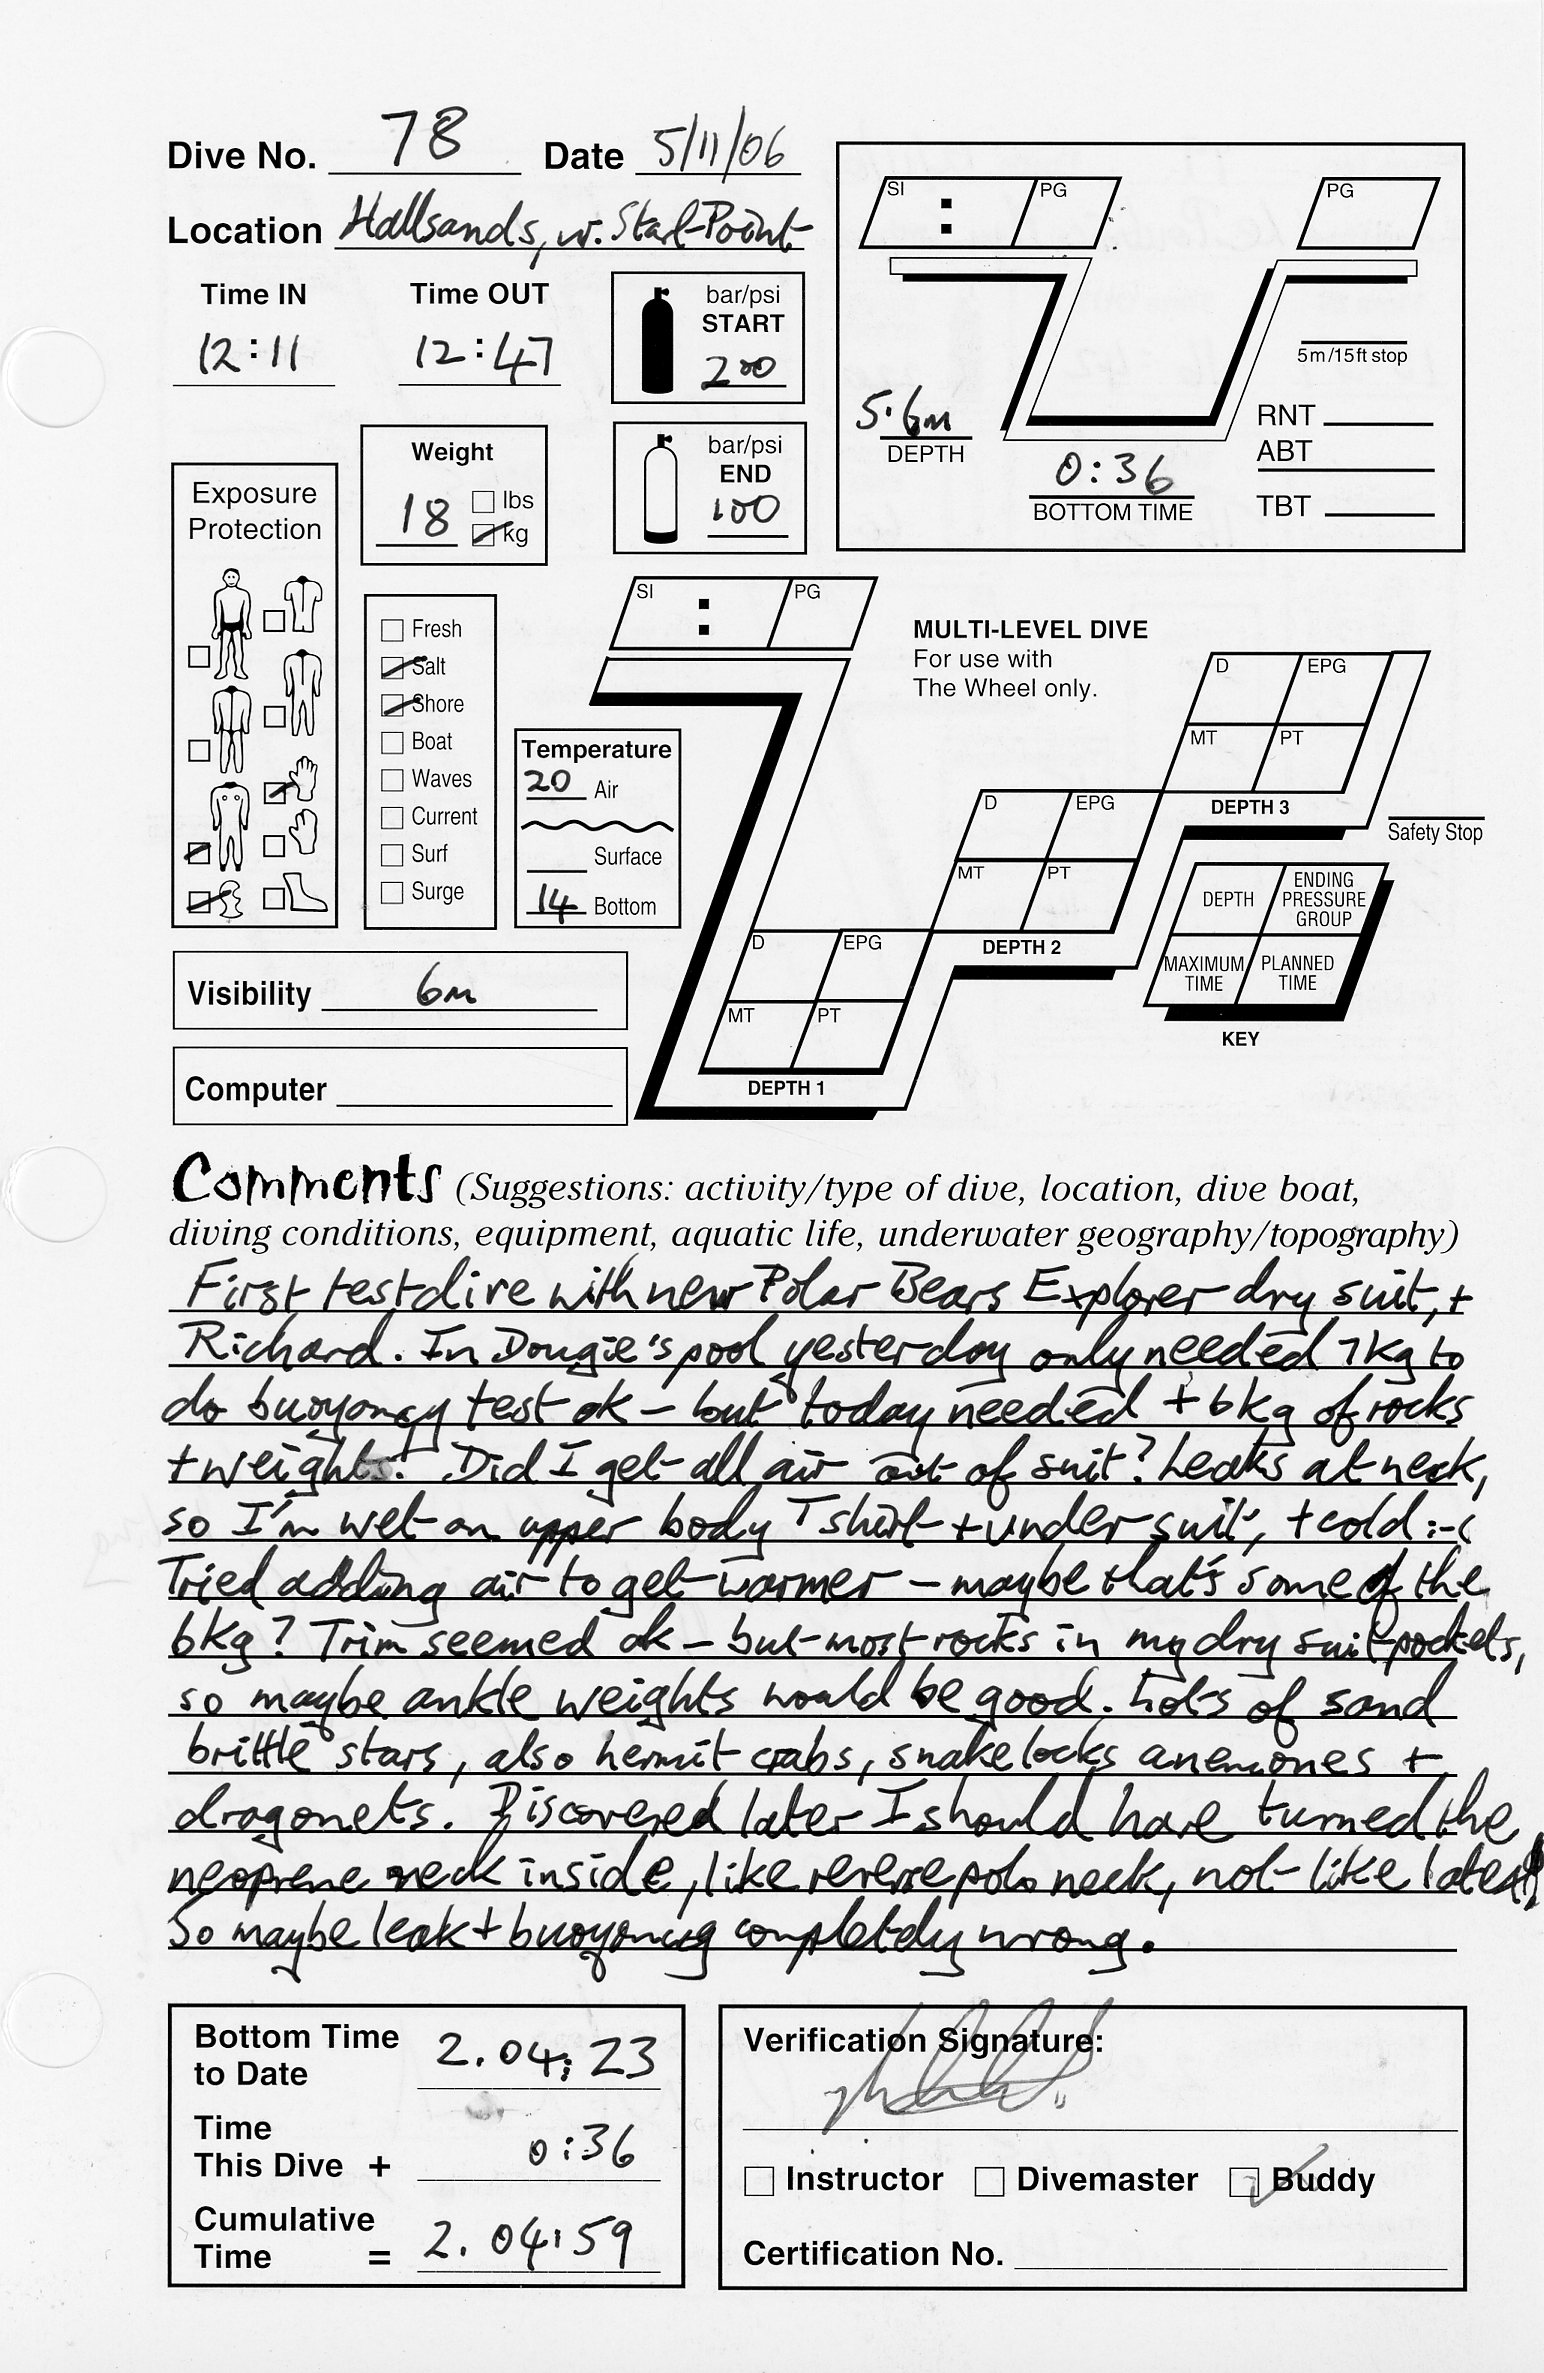 Dive No. 78 Date 5/11/06
Location Hallsands, nr. Start Point
Time IN Time OUT
12:11 12:47
bar/psi
START
200
bar/psi
END
100
Weight
18 lbs
kg
Exposure
Protection
Fresh
Salt
Shore
Boat
Waves
Current
Surf
Surge
Temperature
20 Air
Surface
14 Bottom
Visibility 6m
Computer
SI : PG
PG
5m/15ft stop
5.6m
DEPTH
0:36
BOTTOM TIME
RNT
ABT
TBT
SI : PG
MULTI-LEVEL DIVE
For use with
The Wheel only.
D EPG
MT PT
DEPTH 3
D EPG
MT PT
DEPTH 2
D EPG
MT PT
DEPTH 1
Safety Stop
DEPTH
ENDING
PRESSURE
GROUP
MAXIMUM
TIME
PLANNED
TIME
KEY
Comments (Suggestions: activity/type of dive, location, dive boat,
diving conditions, equipment, aquatic life, underwater geography/topography)
First test dive with new Polar Bears Explorer dry suit, +
Richard. In Dougie's pool yesterday only needed 7kg to
do buoyancy test ok – but today needed + 6kg of rocks
+ weights! Did I get all air out of suit? Leaks at neck,
so I'm wet on upper body T shirt + under suit, + cold :-(
Tried adding air to get warmer – maybe that's some of the
6kg? Trim seemed ok – but most rocks in my dry suit pockets,
so maybe ankle weights would be good. Lots of sand
brittle stars, also hermit crabs, snakelocks anemones +
dragonets. Discovered later I should have turned the
neoprene neck inside, like reverse polo neck, not like latex!
So maybe leak + buoyancy completely wrong.
Bottom Time
to Date 2.04:23
Time
This Dive + 0:36
Cumulative
Time = 2.04:59
Verification Signature:
Instructor Divemaster Buddy
Certification No.